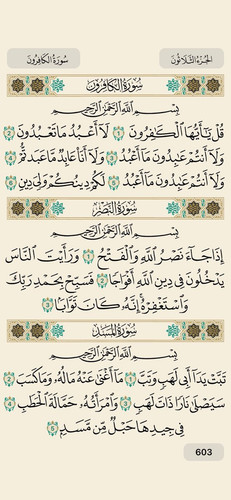 سُورَةُ الكَافِرُونَ الجُزءُ الثَّلَاثُونَ
سُورَةُ الكَافِرُونَ
بِسْمِ اللَّهِ الرَّحْمَٰنِ الرَّحِيمِ
قُلْ يَٰٓأَيُّهَا ٱلْكَٰفِرُونَ ١ لَآ أَعْبُدُ مَا تَعْبُدُونَ ٢
وَلَآ أَنتُمْ عَٰبِدُونَ مَآ أَعْبُدُ ٣ وَلَآ أَنَا۠ عَابِدٌ مَّا عَبَدتُّمْ ٤
وَلَآ أَنتُمْ عَٰبِدُونَ مَآ أَعْبُدُ ٥ لَكُمْ دِينُكُمْ وَلِىَ دِينِ ٦
سُورَةُ النَّصْرِ
بِسْمِ اللَّهِ الرَّحْمَٰنِ الرَّحِيمِ
إِذَا جَآءَ نَصْرُ ٱللَّهِ وَٱلْفَتْحُ ١ وَرَأَيْتَ ٱلنَّاسَ
يَدْخُلُونَ فِى دِينِ ٱللَّهِ أَفْوَاجًا ٢ فَسَبِّحْ بِحَمْدِ رَبِّكَ
وَٱسْتَغْفِرْهُ إِنَّهُۥ كَانَ تَوَّابًۢا ٣
سُورَةُ المَسَدِ
بِسْمِ اللَّهِ الرَّحْمَٰنِ الرَّحِيمِ
تَبَّتْ يَدَآ أَبِى لَهَبٍ وَتَبَّ ١ مَآ أَغْنَىٰ عَنْهُ مَالُهُۥ وَمَا كَسَبَ ٢
سَيَصْلَىٰ نَارًا ذَاتَ لَهَبٍ ٣ وَٱمْرَأَتُهُۥ حَمَّالَةَ ٱلْحَطَبِ ٤
فِى جِيدِهَا حَبْلٌ مِّن مَّسَدٍۭ ٥
603